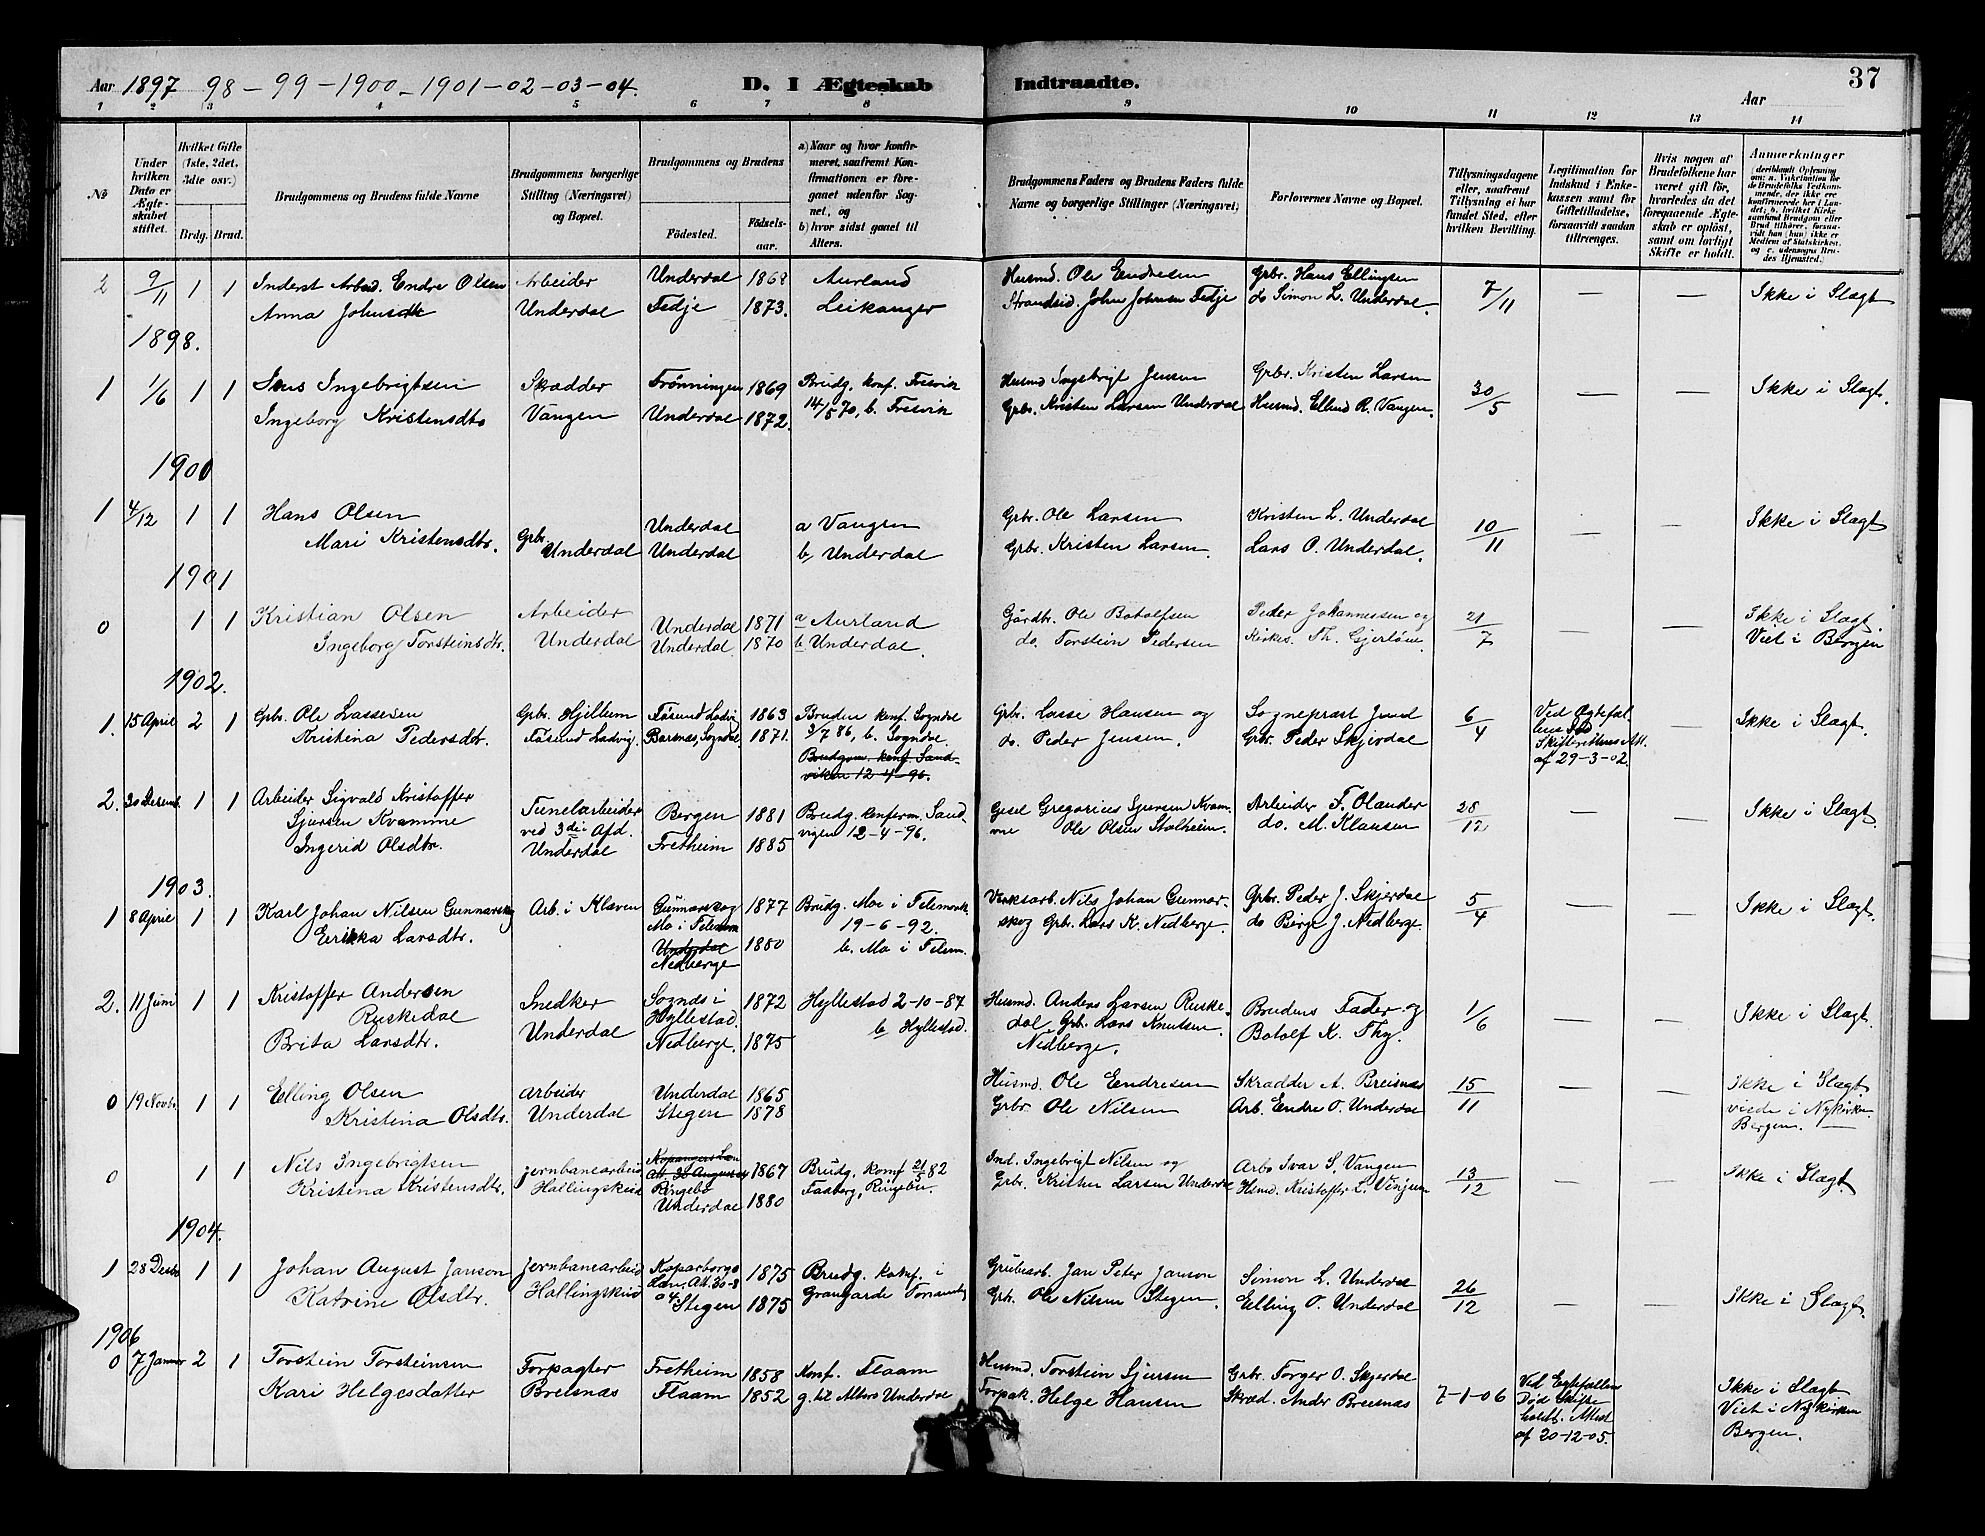 Aar 1897 98 - 99 - 1900 - 1901 - 02 - 03 - 04. D. I Ægteskab Indtraadte. Aar 37
1 2 3 4 5 6 7 8 9 10 11 12 13 14
No
Under hvilken Dato er Ægteskabet stiftet.
Hvilket Gifte (1ste, 2det, 3die osv.)
Brdg. Brud.
Brudgommens og Brudens fulde Navne
Brudgommens borgerlige Stilling (Næringsvei) og Bopæl.
Brudgommens og Brudens
Fødested.
Fødsels-aar.
a) Naar og hvor konfirmeret, saafremt Konfirmationen er foregaaet udenfor Sognet, og
b) hvor sidst gaaet til Alters.
Brudgommens Faders og Brudens Faders fulde Navne og borgerlige Stillinger (Næringsvei)
Forlovernes Navne og Bopæl.
Tillysningsdagene eller, saafremt Tillysning ei har fundet Sted, efter hvilken Bevilling.
Legitimation for Indskud i Enkekassen samt for Giftetilladelse, forsaavidt saadan tiltrænges.
Hvis nogen af Brudefolkene har været gift før, hvorledes da det foregaaende Ægteskab er opløst, samt om lovligt Skifte er holdt.
Anmerkninger
2 9/11 1 1 Inderst Arbeid. Endre Olsen Arbeider Underdal 1868 Aurland Husmd. Ole Endresen Grbr. Hans Ellingsen 7/11 — — Ikke i Slægt
Anna Johnsdtr Underdal Fedje 1873. Leikanger Strandsid. John Johnsen Fedje do Simon L. Underdal.
1898.
1 1/6 1 1 Jens Ingebrigtsen Skrædder Frønningen 1869 Brudg. konf. Fresvik Husmd Ingebrigt Jensen Grbr. Kristen Larsen 30/5 — — Ikke i Slægt.
Ingeborg Kristensdtr Vangen Underdal 1872. 14/5 70, b. Fresvik Grbr. Kristen Larsen Underdal Husmd. Ellend R. Vangen.
1900
1 4/12 1 1 Hans Olsen Grbr. Underdal a Vangen Grbr. Ole Larsen Kristen L. Underdal 10/11 — — Ikke i Slægt
Mari Kristensdtr. Underdal Underdal b, Underdal Grbr. Kristen Larsen. Lars O. Underdal.
1901
0 1 1 Kristian Olsen Arbeider Underdal 1871 a Aurland Gårdbr. Ole Botolfsen Peder Johannessen og 21/7 — — Ikke i Slægt.
Ingeborg Torsteinsdtr. Underdal Underdal 1870 b Underdal. do. Torstein Pedersen Kirkes. Th. Gjerløw. Viet i Bergen
1902.
1. 15 April 2 1 Grbr. Ole Lassesen Grbr. Hjellum 1863 Bruden konf. Sogndal Grbr. Lasse Hansen og Sogneprest Juul 6/4 Ved — Ikke i Slægt.
Kristina Pedersdtr. Ladvig. Barsnæs, Sogndal 1871. 3/7 86, b. Sogndal. do. Peder Jensen. Grbr. Peder Skjerdal
Brudgom. konf. Sandviken 12-4-96. af 29-3-02.
2. 30 Desemb. 1 1 Arbeider Sigvald Kristoffer Tunelarbeider Bergen 1881 Brudg. konferm. Sand- Gregorius Sjursen Kvam- Arbeider F. Olander 28/12 — — Ikke i Slægt.
Sjursen Kvamme ved 3die Afd. vigen 12-4-96. me Ole Olsen Stalheim. do. M. Klausen
Ingerid Olsdtr. Underdal Fretheim 1885
1903.
1 8 April 1 1 Karl Johan Nilsen Gunnarskog Arb. i Klæven Gunnarskog 1877 Brudg. Mo i Telemark. Verksarb. Nils Johan Gunnar- Grbr. Peder J. Skjerdal 5/4 — — Ikke i Slægt.
Erikka Larsdtr. Mo i Telem. 19-6-92. skog Grbr. Lars K. Nedberge. do Berge J. Nedberge.
Underdal Nedberge 1880 b. Mo i Telem.
2. 11 Juni 1 1 Kristoffer Andersen Snedker Sognæs i 1872 Hyllestad 2-10-87 Husmd. Anders Larsen Ruske- Brudens Fader og 1/6 — — Ikke i Slægt.
Ruskedal Underdal Hyllestad. b Hyllestad. dal, Grbr. Lars Knutsen. Botolf K. Thy.
Brita Larsdtr. Nedberge. 1875 Nedberge.
0 19 Novbr. 1 1 Elling Olsen arbeider Underdal 1865 Husmd. Ole Endresen Skradder A. Breisnæs 15/11 — — Ikke i Slægt
Kristina Olsdtr. Underdal Stegen 1878 Grbr. Ole Nilsen Arb. Endre O. Underdal viede i Nykirke. Bergen. —
0 1 1 Nils Ingebrigtsen Jernbanearbeid 1867 Brudg. konf 21/5 82 Ind. Ingebrigt Nilsen og Arb. Ivar S. Vangen 13/12 — — Ikke i Slægt.
Kristina Kristensdtr. Hallingskeid Ringebo Faaberg, Ringebu. Grbr. Kristen Larsen Underdal Hsmd. Kristoffer L. Vinjum
Underdal 1880
1904.
1 28 Desbr 1 1 Johan August Janson Jernbanearbeid Koparborgs 1875 Brudg. konf. i Grubearb. Jan Peter Janson Simon L. Underdal 26/12 — — Ikke i Slægt.
Katrine Olsdtr. Hallingskeid Læn. Att. 30-8 04 Stegen 1875 Grangärde Grb. Ole Nilsen Stegen. Elling O. Underdal
1906
0 7 Januar 2 1 Torstein Torsteinsen Forpagter Fretheim 1858 Konf. Flaam Husmd. Torstein Sjursen Grbr. Torger O. Skjerdal 7-1-06 Ved Egtefællens Død Skifte holdt. Attest af 20-12-05. Ikke i Slægt
Kari Helgesdatter Breisnæs Flaam 1852 g. til Alters Underdal Forpak. Helge Hansen Skræd. Anders Breisnæs Viet i Nykirken Bergen.